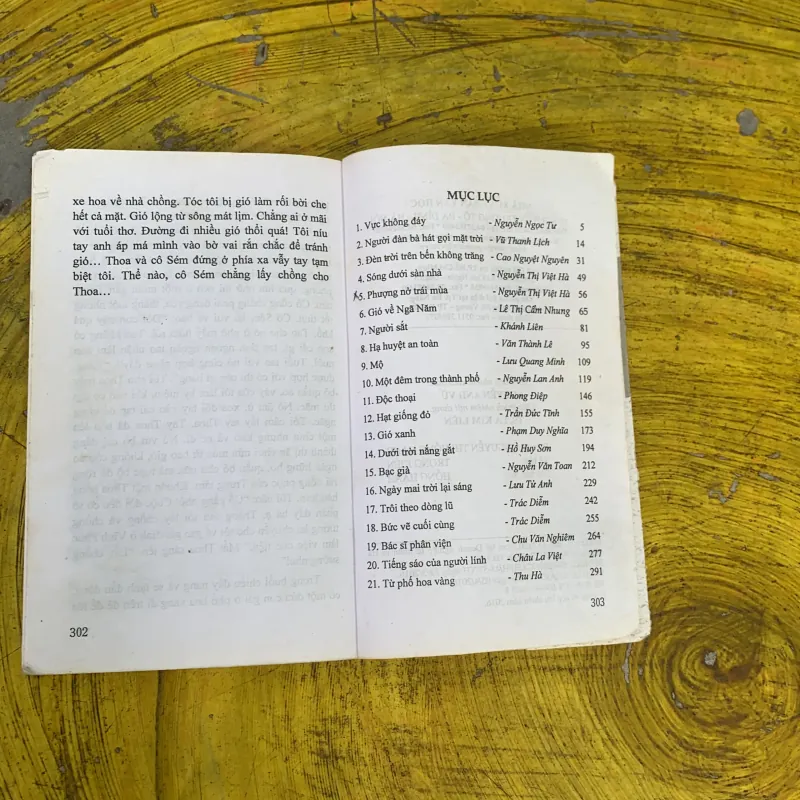 xe hoa về nhà chồng. Tóc tôi bị gió làm rối bời che
hết cả mặt. Gió lộng từ sông mát lịm. Chẳng ai ở mãi
với tuổi thơ. Đường đi nhiều gió thổi quá! Tôi níu
tay anh áp má mình vào bờ vai rắn chắc để tránh
gió... Thoa và cô Sém đứng ở phía xa vẫy tay tạm
biệt tôi. Thế nào, cô Sém chẳng lấy chồng cho
Thoa...
302
MỤC LỤC
1. Vực không đáy - Nguyễn Ngọc Tư 5
2. Người đàn bà hát gọi mặt trời - Vũ Thanh Lịch 14
3. Đèn trời trên bến không trăng - Cao Nguyệt Nguyên 31
4. Sóng dưới sàn nhà - Nguyễn Thị Việt Hà 49
5. Phượng nở trái mùa - Nguyễn Thị Việt Hà 56
6. Gió về Ngã Năm - Lê Thị Cẩm Nhung 65
7. Người sắt - Khánh Liên 81
8. Hạ huyệt an toàn - Văn Thành Lê 95
9. Mộ - Lưu Quang Minh 109
10. Một đêm trong thành phố - Nguyễn Lan Anh 119
11. Độc thoại - Phong Điệp 146
12. Hạt giống đỏ - Trần Đức Tĩnh 155
13. Gió xanh - Phạm Duy Nghĩa 173
14. Dưới trời nắng gắt - Hồ Huy Sơn 194
15. Bạc giả - Nguyễn Văn Toan 212
16. Ngày mai trời lại sáng - Lưu Tử Anh 229
17. Trôi theo dòng lũ - Trác Diễm 242
18. Bức vẽ cuối cùng - Trác Diễm 255
19. Bác sĩ phân viện - Chu Văn Nghiêm 264
20. Tiếng sáo của người lính - Châu La Việt 277
21. Từ phố hoa vàng - Thu Hà 291
303